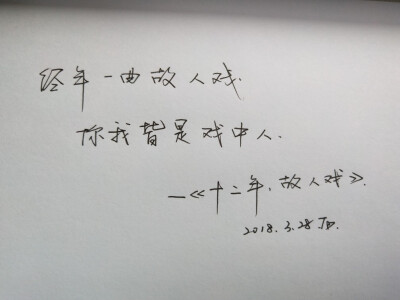 经年一曲故人戏.
你我皆是戏中人.
—《十二年,故人戏》.
2018.3.28